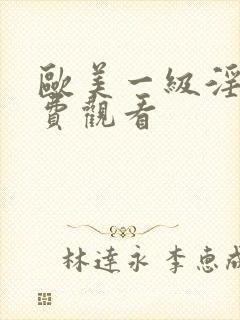 歐美一級淫
費觀看
林達永 李惠成